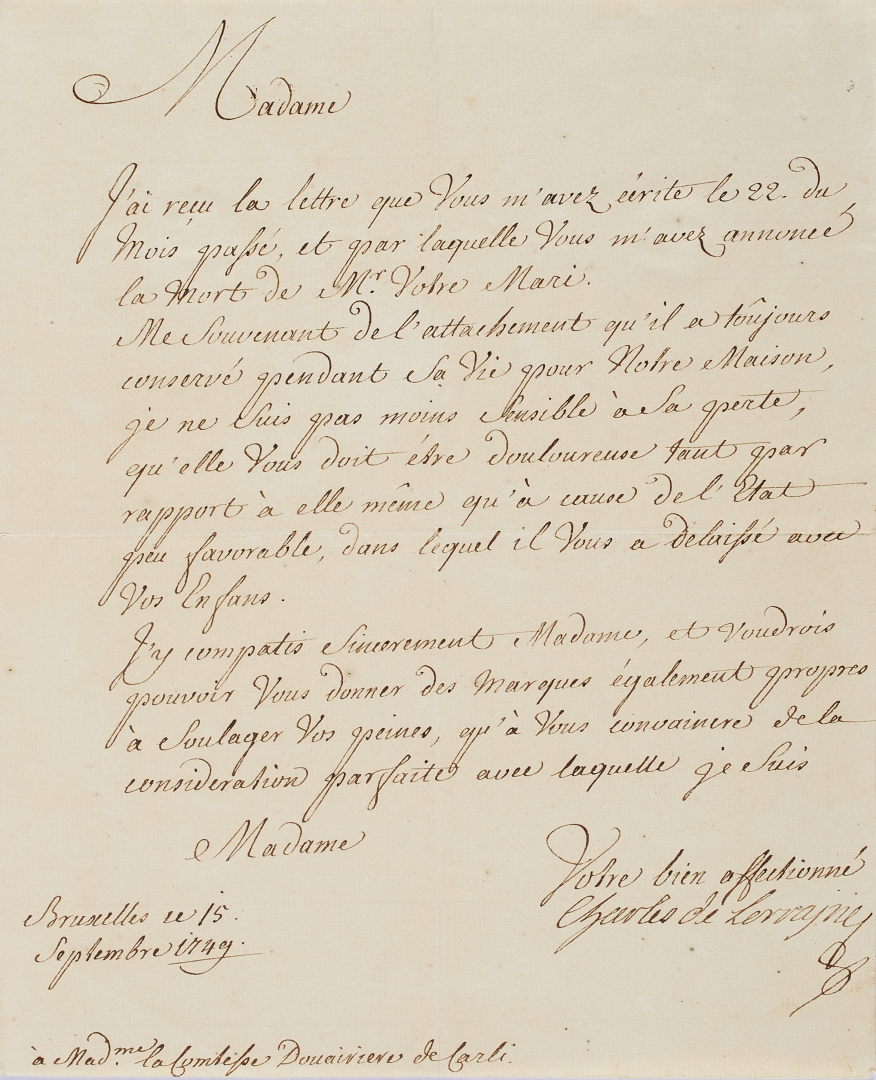 Madame
J'ai reçu la lettre que Vous m'avez écrite le 22. du
Mois passé, et par laquelle Vous m'avez annoncé
la Mort de Mr. Votre Mari.
Me Souvenant de l'attachement qu'il a toûjours
conservé pendant Sa Vie pour Notre Maison,
je ne Suis pas moins Sensible à Sa perte,
qu'elle Vous doit étre douloureuse tant par
rapport à elle même qu'à cause de l'Etat
peu favorable, dans lequel il Vous a delaissé avec
Vos Enfans.
J'y compatis Sincerement Madame, et voudrois
pouvoir Vous donner des Marques également propres
à Soulager Vos peines, qu'à Vous convaincre de la
consideration parfaite avec laquelle je Suis
Madame
Votre bien affectionné
Charles de Lorraine
Bruxelles ce 15.
Septembre 1749.
à Madme. la Comtesse Douairiere de Carli.